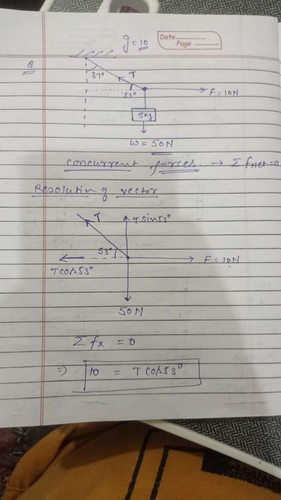 g = 10
Date
Page
Q
37°
T
53°
F = 10N
5kg
W = 50N
concurrent forces → Σ fNet = 0
Resolution of vector
T
T sin 53°
53°
F = 10N
T cos 53°
50N
Σ fx = 0
⇒ 10 = T cos 53°